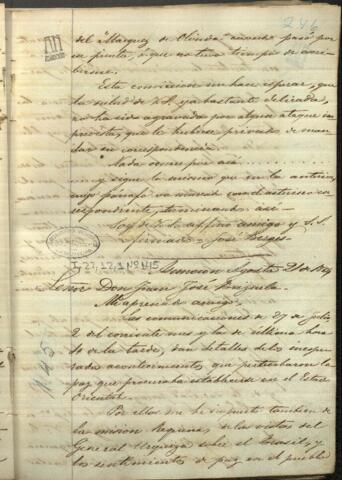 246
del "Marques de Olinda" cuando pasó por
ese punto, ó que no tuvo tiempo de escri-
birme.
Esta conviccion me hace esperar, que
la salud de V.E. ya bastante delicada,
no ha sido agravada por algun ataque im-
previsto, que le hubiese privado de man-
dar su correspondencia.
Nada ocurre por acá
y sigue la misma que en la anterior
cuyo párrafo va marcad con el asterisco co-
rrespondiente, terminando asi-
Soy de V.E. affmo amigo y S.S.
firmado José Berges
I-22,12,1 Nº 145
Asuncion Agosto 21 de 1864
Señor Don Juan José Brizuela.
Mi apreciado amigo.
Las comunicaciones de 27 de julio
2 del corriente mes y la de ultima hora
de la tarde, dan detalles de los inespe-
rados acontecimientos que perturbaron la
paz que procuraba establecerse en el Estado
Oriental.
Por ellos me he impuesto tambien de
la mision Laguna, de las vistas del
General Urquiza sobre el Brasil, y
los sentimientos de paz en el pueblo